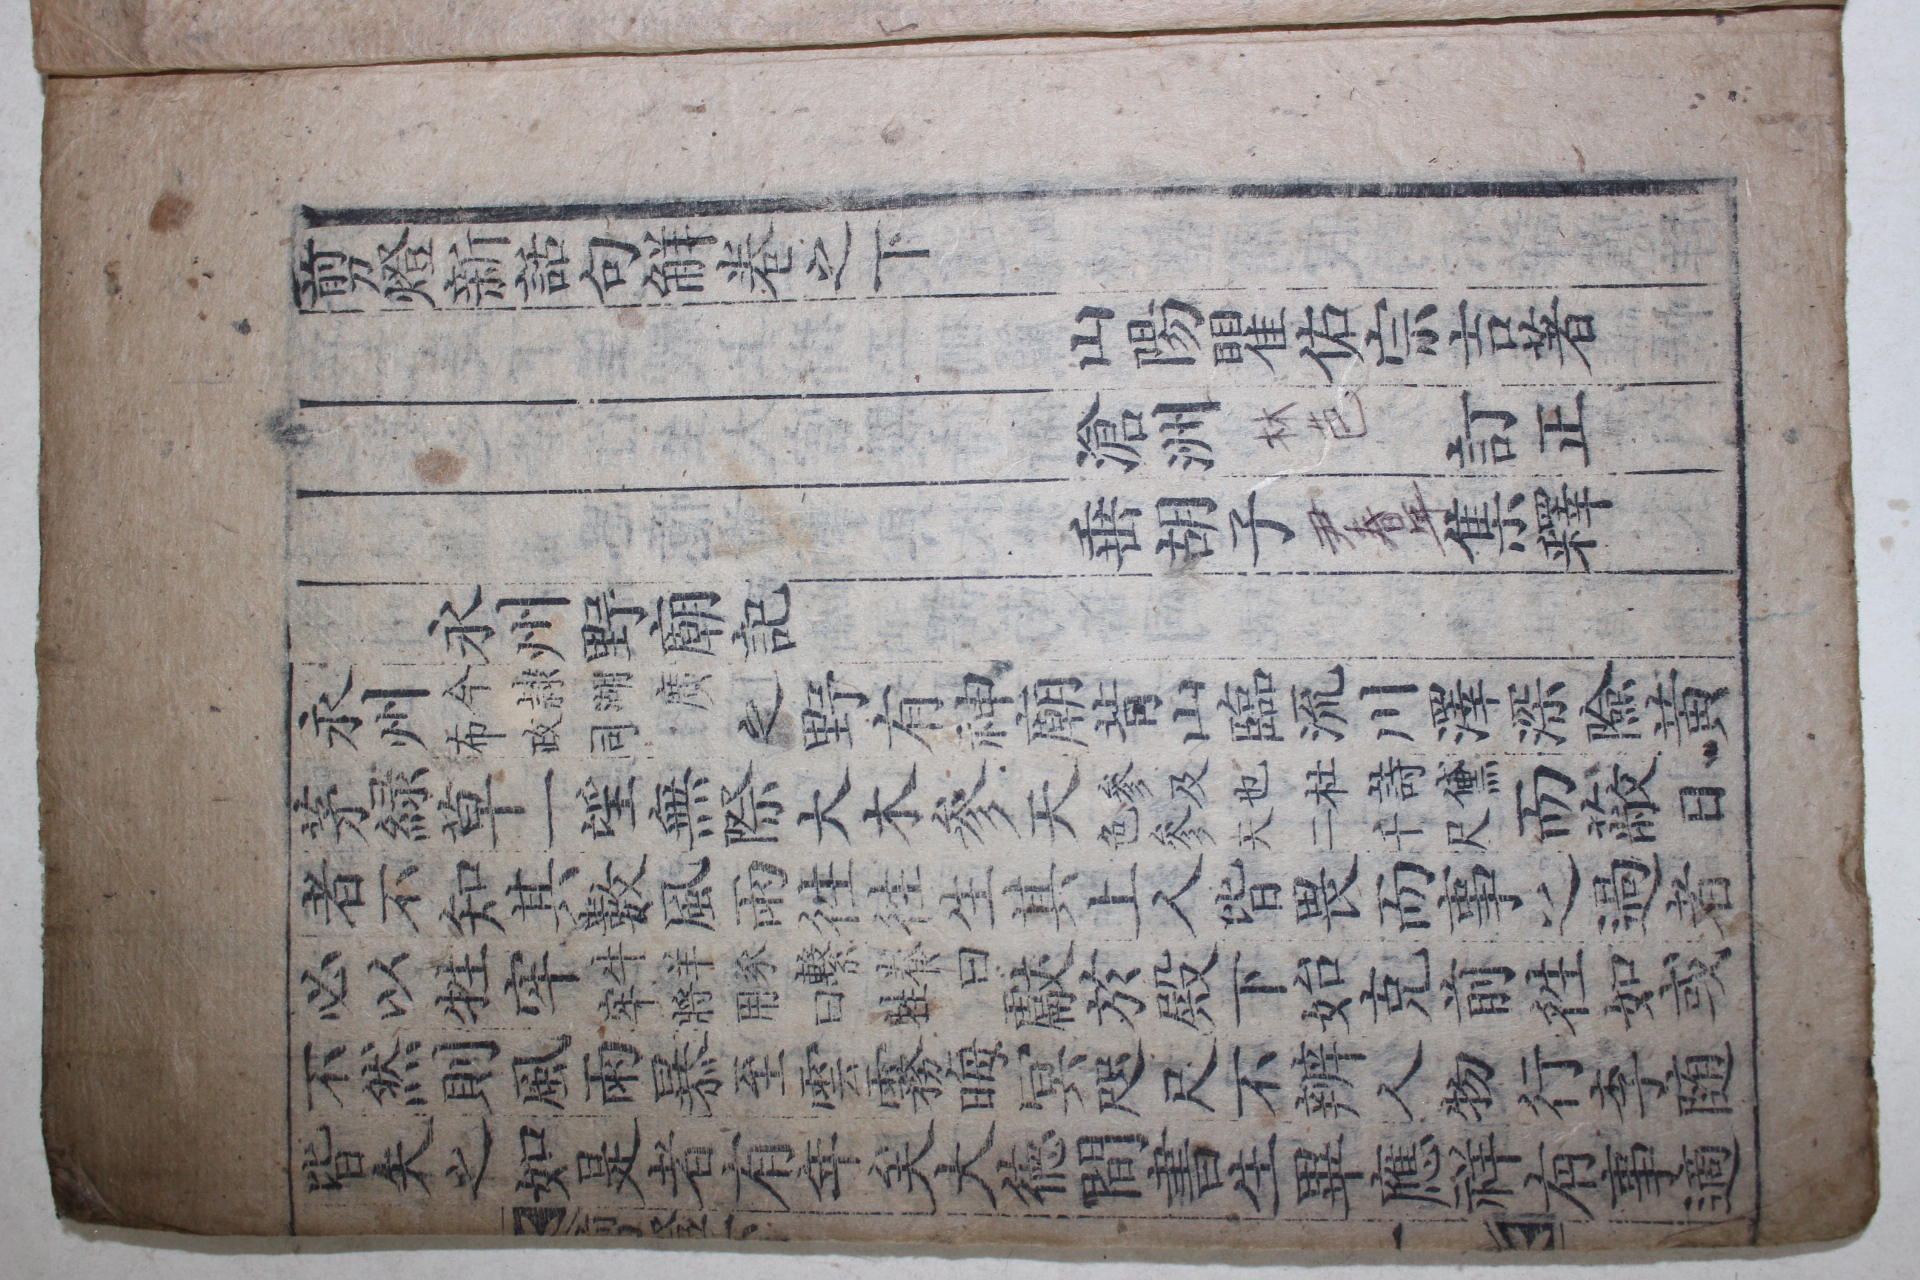 剪燈新話句解卷之下
山陽瞿佑宗吉著
滄洲林芑訂正
垂胡子尹春年集釋
永州野廟記
永州今隷湖廣布政司之野有神廟背山臨流川澤深險黃
茅緑草一望無際大木參天參及也杜詩黛色參天二千尺而蔽日
者不知其數風雨徃徃生其上人皆畏而事之過者
必以牲牢牛羊豕繫養曰牢將用曰牲獻於殿下始克前徃如或
不然則風雨暴至雲霧晦冥咫尺不辨人物行李随
皆失之如是者有年矣大德間書生畢應祥有事適